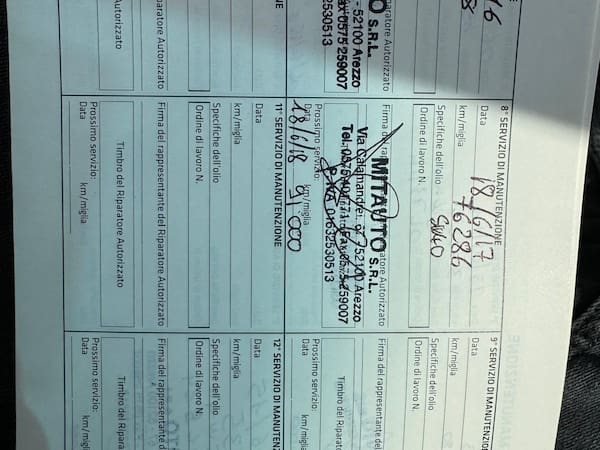 16
O S.R.L.
- 52100 Arezzo
Fax 0575 259007
30513
paratore Autorizzato
8° SERVIZIO DI MANUTENZIONE
Data 18/6/17
km/miglia 76286
Specifiche dell'olio 5W40
Ordine di lavoro N.
Firma del
atore Autorizzato
MITAUTO S.R.L.
Via Calamandrei, 52100 Arezzo
Tel. 0575 Fax 0575 259007
P. IVA 01632530513
Prossimo servizio:
Data km/miglia
18/6/18 91000
9° SERVIZIO DI MANUTENZIONE
Data
km/miglia
Specifiche dell'olio
Ordine di lavoro N.
Firma del rappresentante del
Timbro del Riparatore
Prossimo servizio:
Data km/miglia
NE
paratore Autorizzato
Autorizzato
11° SERVIZIO DI MANUTENZIONE
Data
km/miglia
Specifiche dell'olio
Ordine di lavoro N.
Firma del rappresentante del Riparatore Autorizzato
Timbro del Riparatore Autorizzato
Prossimo servizio:
Data km/miglia
12° SERVIZIO DI MANUTENZIONE
Data
km/miglia
Specifiche dell'olio
Ordine di lavoro N.
Firma del rappresentante d
Timbro del Ripara
Prossimo servizio:
Data km/migl